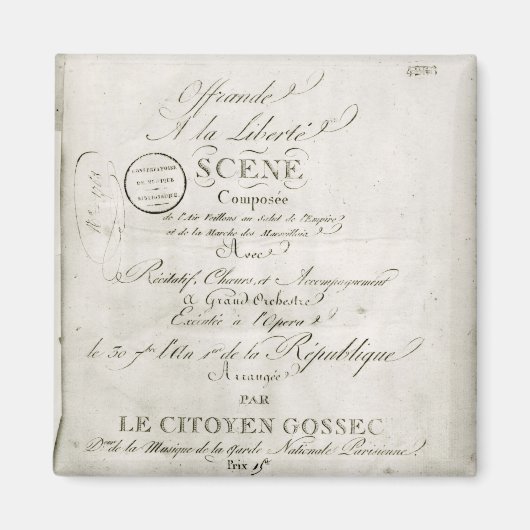 4263
Offrande
A la Liberté
SCENE
Composée
de l'Air Veillons au Salut de l'Empire
et de la Marche des Marseillois
Avec
Récitatif, Chœurs, et Accompagnement
A Grand Orchestre
Exécutée à l'Opera
le 30 7bre l'An 1er de la République
Arrangée
PAR
LE CITOYEN GOSSEC
Der de la Musique de la Garde Nationale Parisienne.
Prix 15tt
CONSERVATOIRE
DE MUSIQUE
BIBLIOTHEQUE